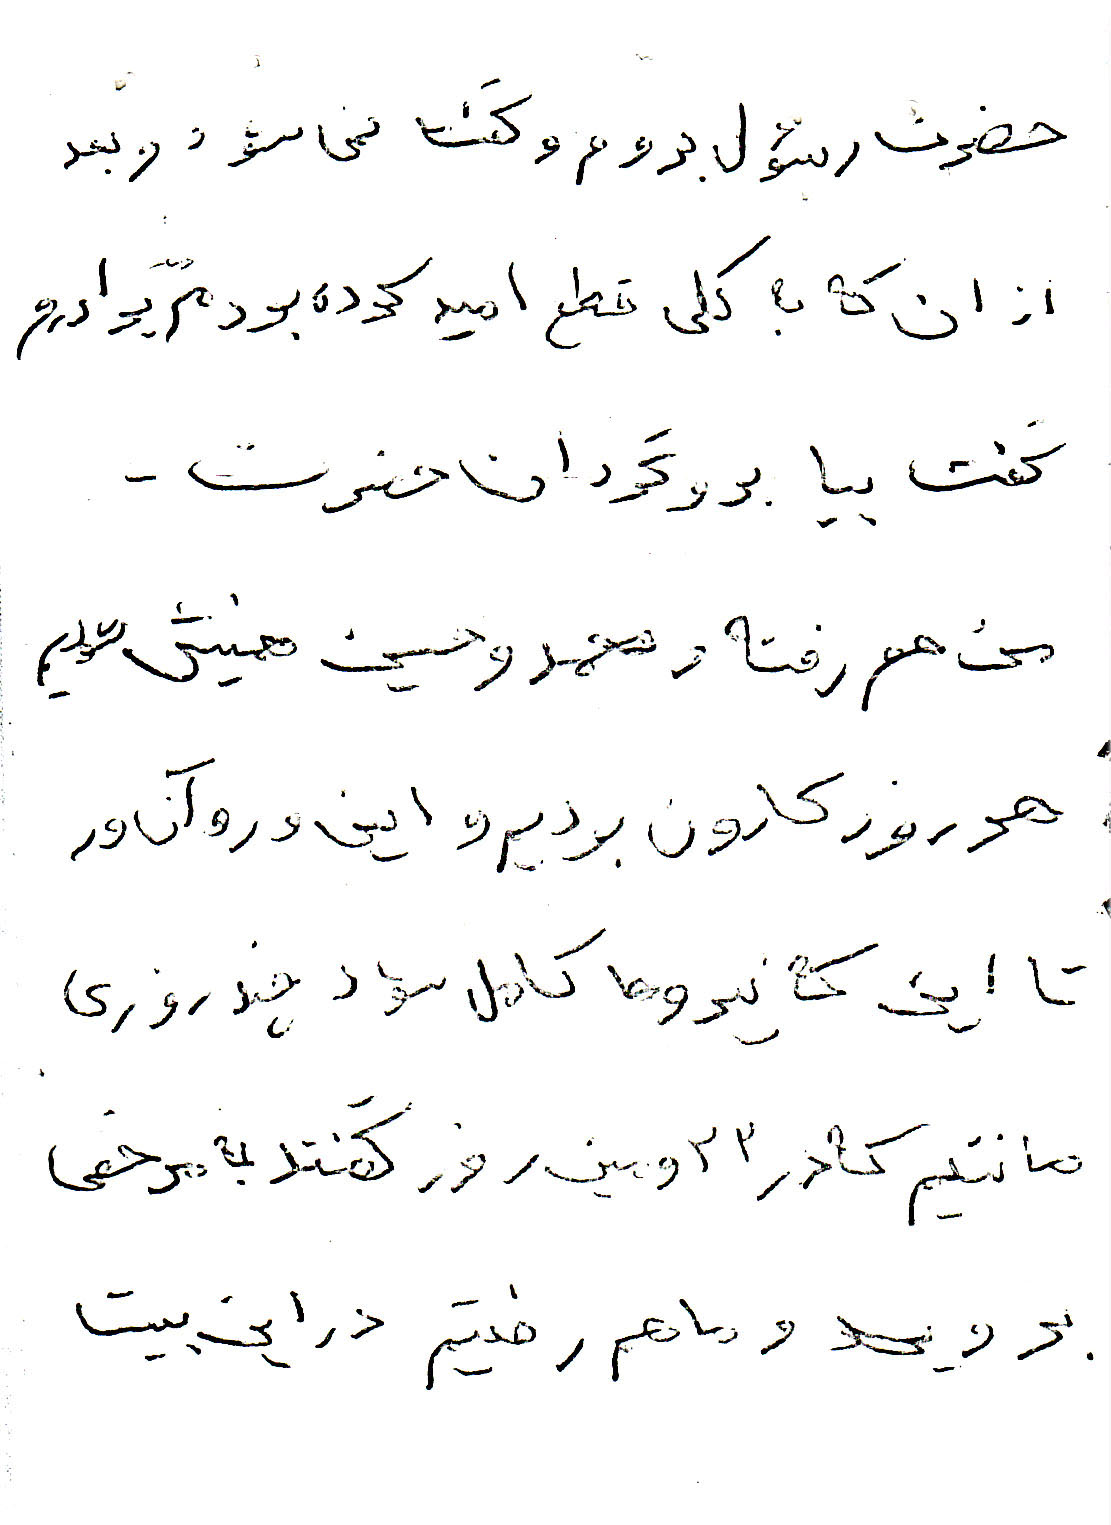 حضرت رسول بروم و گفت نمی شود و بعد
از ان که به کلی قطع امید کرده بودم برادرم
گفت بیا برو گردان حضرت -
من هم رفته و محمد و حسین همینش بودیم
هر روز کارون بودیم و این ور و آن ور
تا این که نیروها کامل شود چند روزی
ماندیم که در ۲۳ ومین روز گفتند به مرخصی
بروید و ما هم رفتیم در این بیت